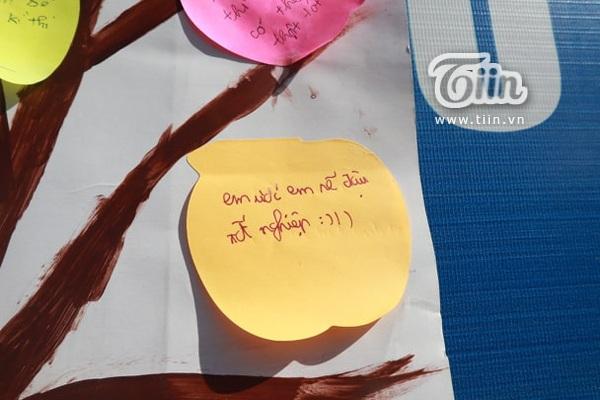 thi
có th
thật tốt
Tiin
www.tiin.vn
em ước em sẽ đậu
tốt nghiệp :)))